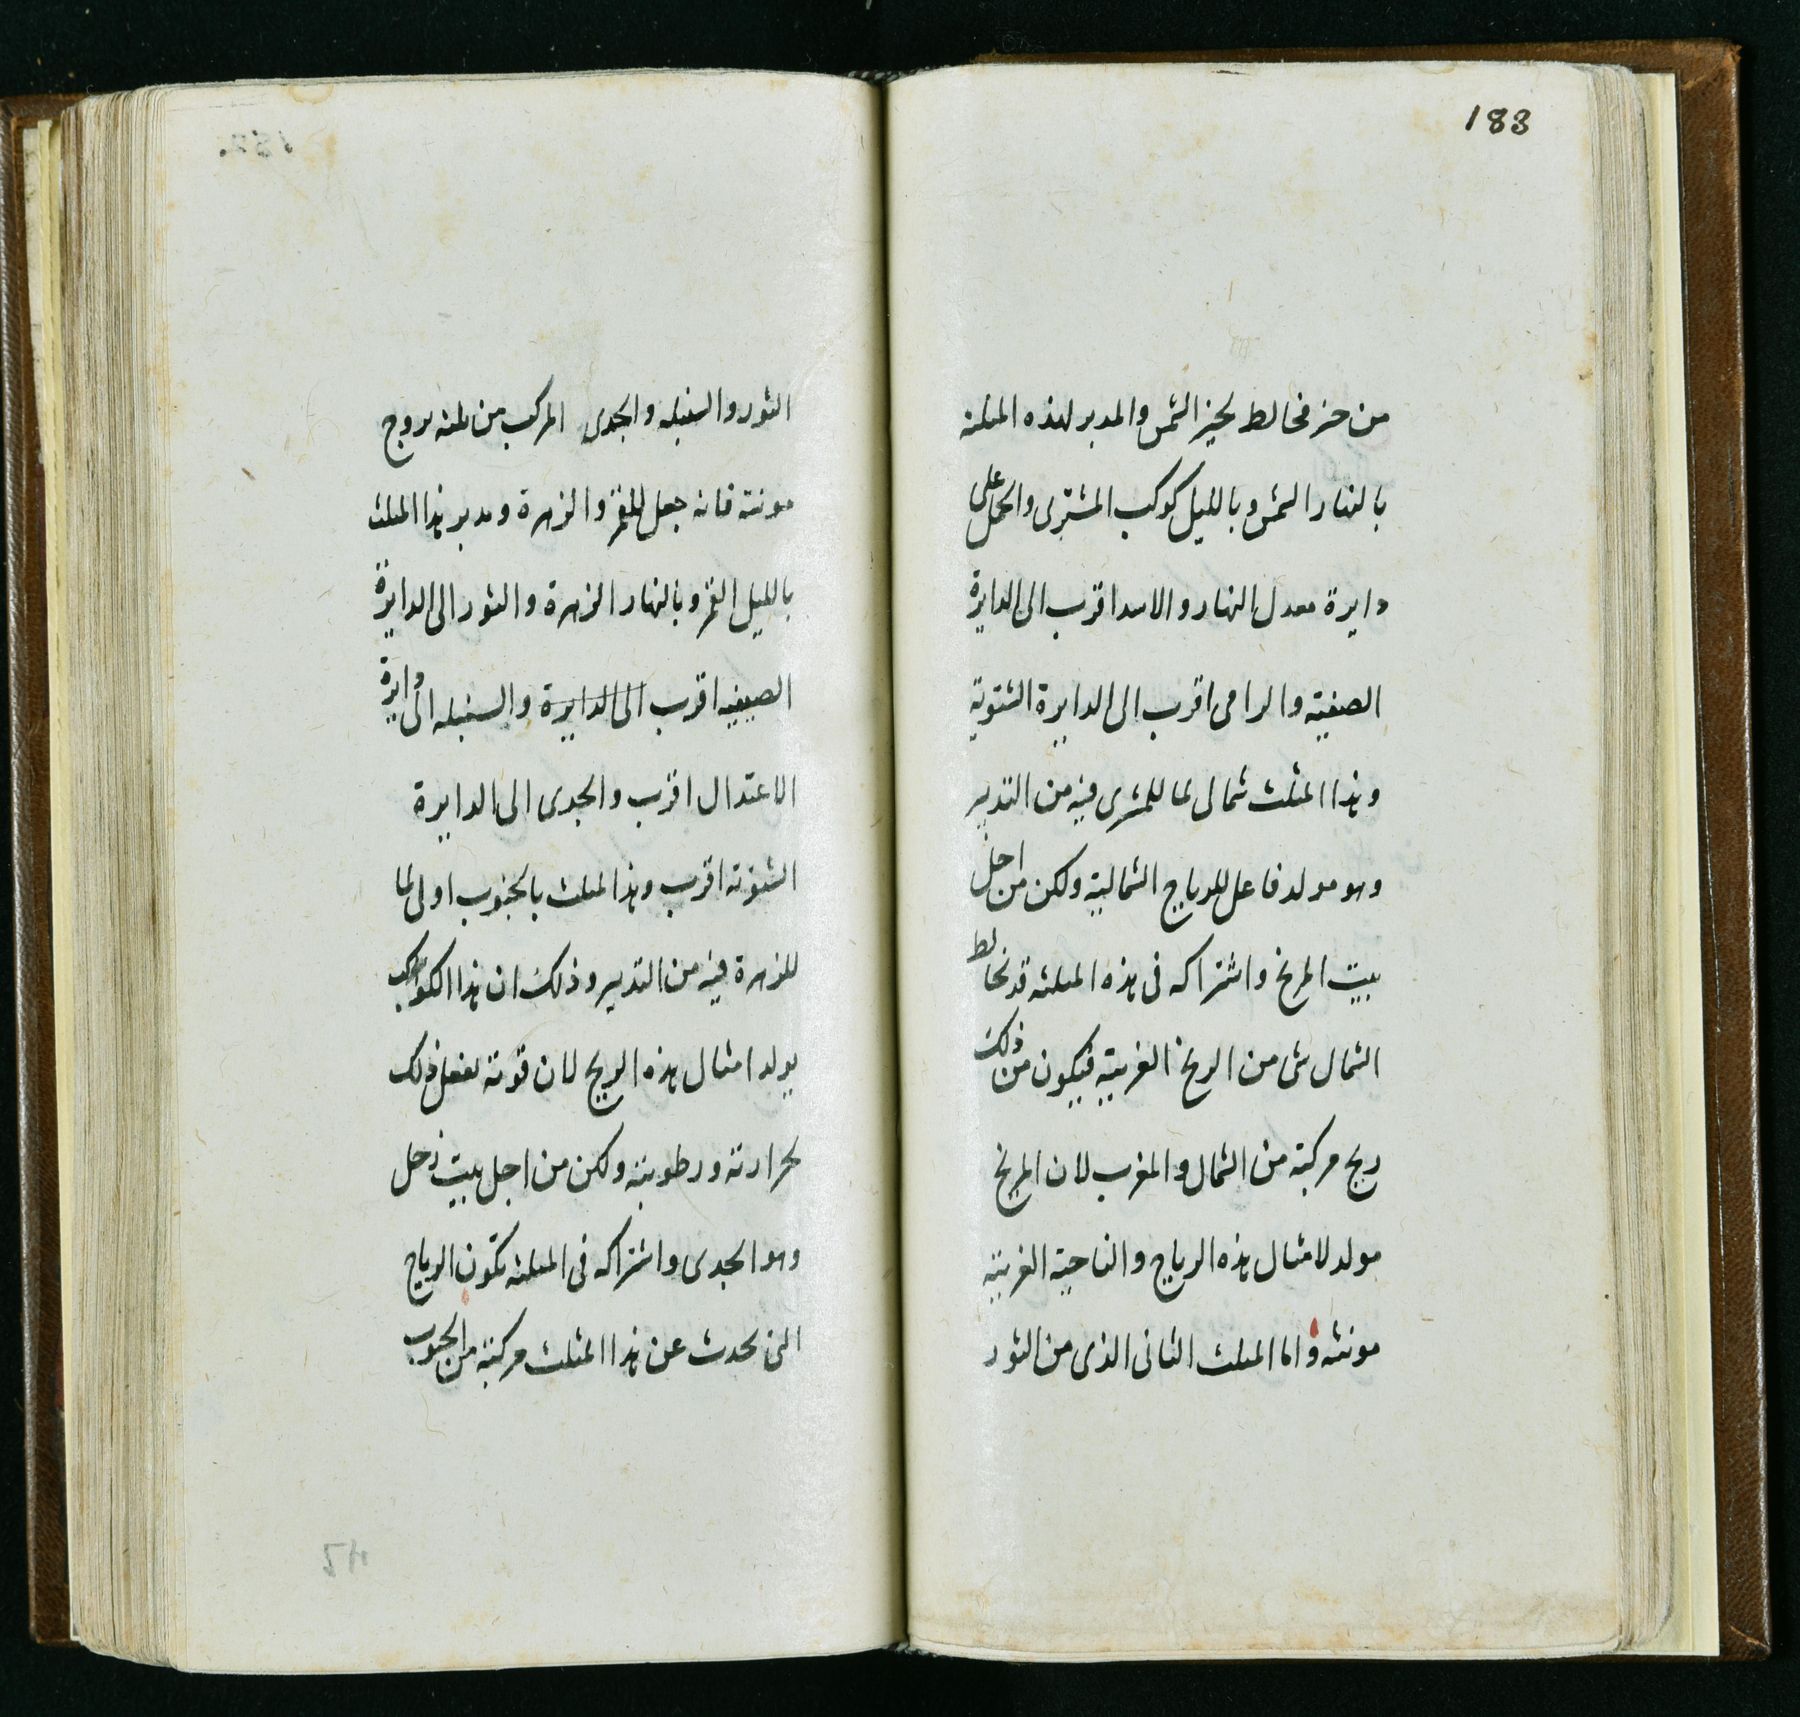 183
من حيز مخالط لحيز الشمس والمدبر لهذه المثلثة
بالنهار الشمس وبالليل كوكب المشترى والحمل على
دايرة معدل النهار والاسد اقرب الى الدايرة
الصيفية والرامى اقرب الى الدايرة الشتوية
وهذا المثلث شمالى لما للمشترى فيه من التدبير
وهو مولد فاعل للرياح الشمالية ولكن من اجل
بيت المريخ واشتراكه فى هذه المثلثه قد يخالط
الشمال شى من الريح الغربية فيكون من ذلك
ريح مركبة من الشمال والمغرب لان المريخ
مولد لامثال هذه الرياح والناحية الغربية
مونثه واما المثلث الثانى الذى من الثور
الثور والسنبله والجدى المركب من ثلثه بروج
مونثة فانه جعل للقمر والزهرة ومدبر هذا المثلث
بالليل القمر وبالنهار الزهرة والثور الى الدايرة
الصيفيه اقرب الى الدايرة والسنبله الى دايرة
الاعتدال اقرب والجدى الى الدايرة
الشتوية اقرب وهذا المثلث بالجنوب اولى لما
للزهرة فيه من التدبير وذلك ان هذا الكوكب
يولد امثال هذه الريح لان قوته تفعل ذلك
لحرارته ورطوبته ولكن من اجل بيت زحل
وهو الجدى واشتراكه فى المثلثه تكون الرياح
التى تحدث عن هذا المثلث مركبة من الجنوب